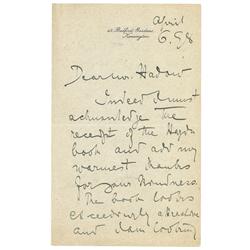 April
6. 98
Bedford Gardens
Kensington
Dear Mr. Hadow
Indeed I must
acknowledge the
receipt of the Haydn
book and add my
warmest thanks
for your kindness.
The book looks
exceedingly attractive
and I am looking